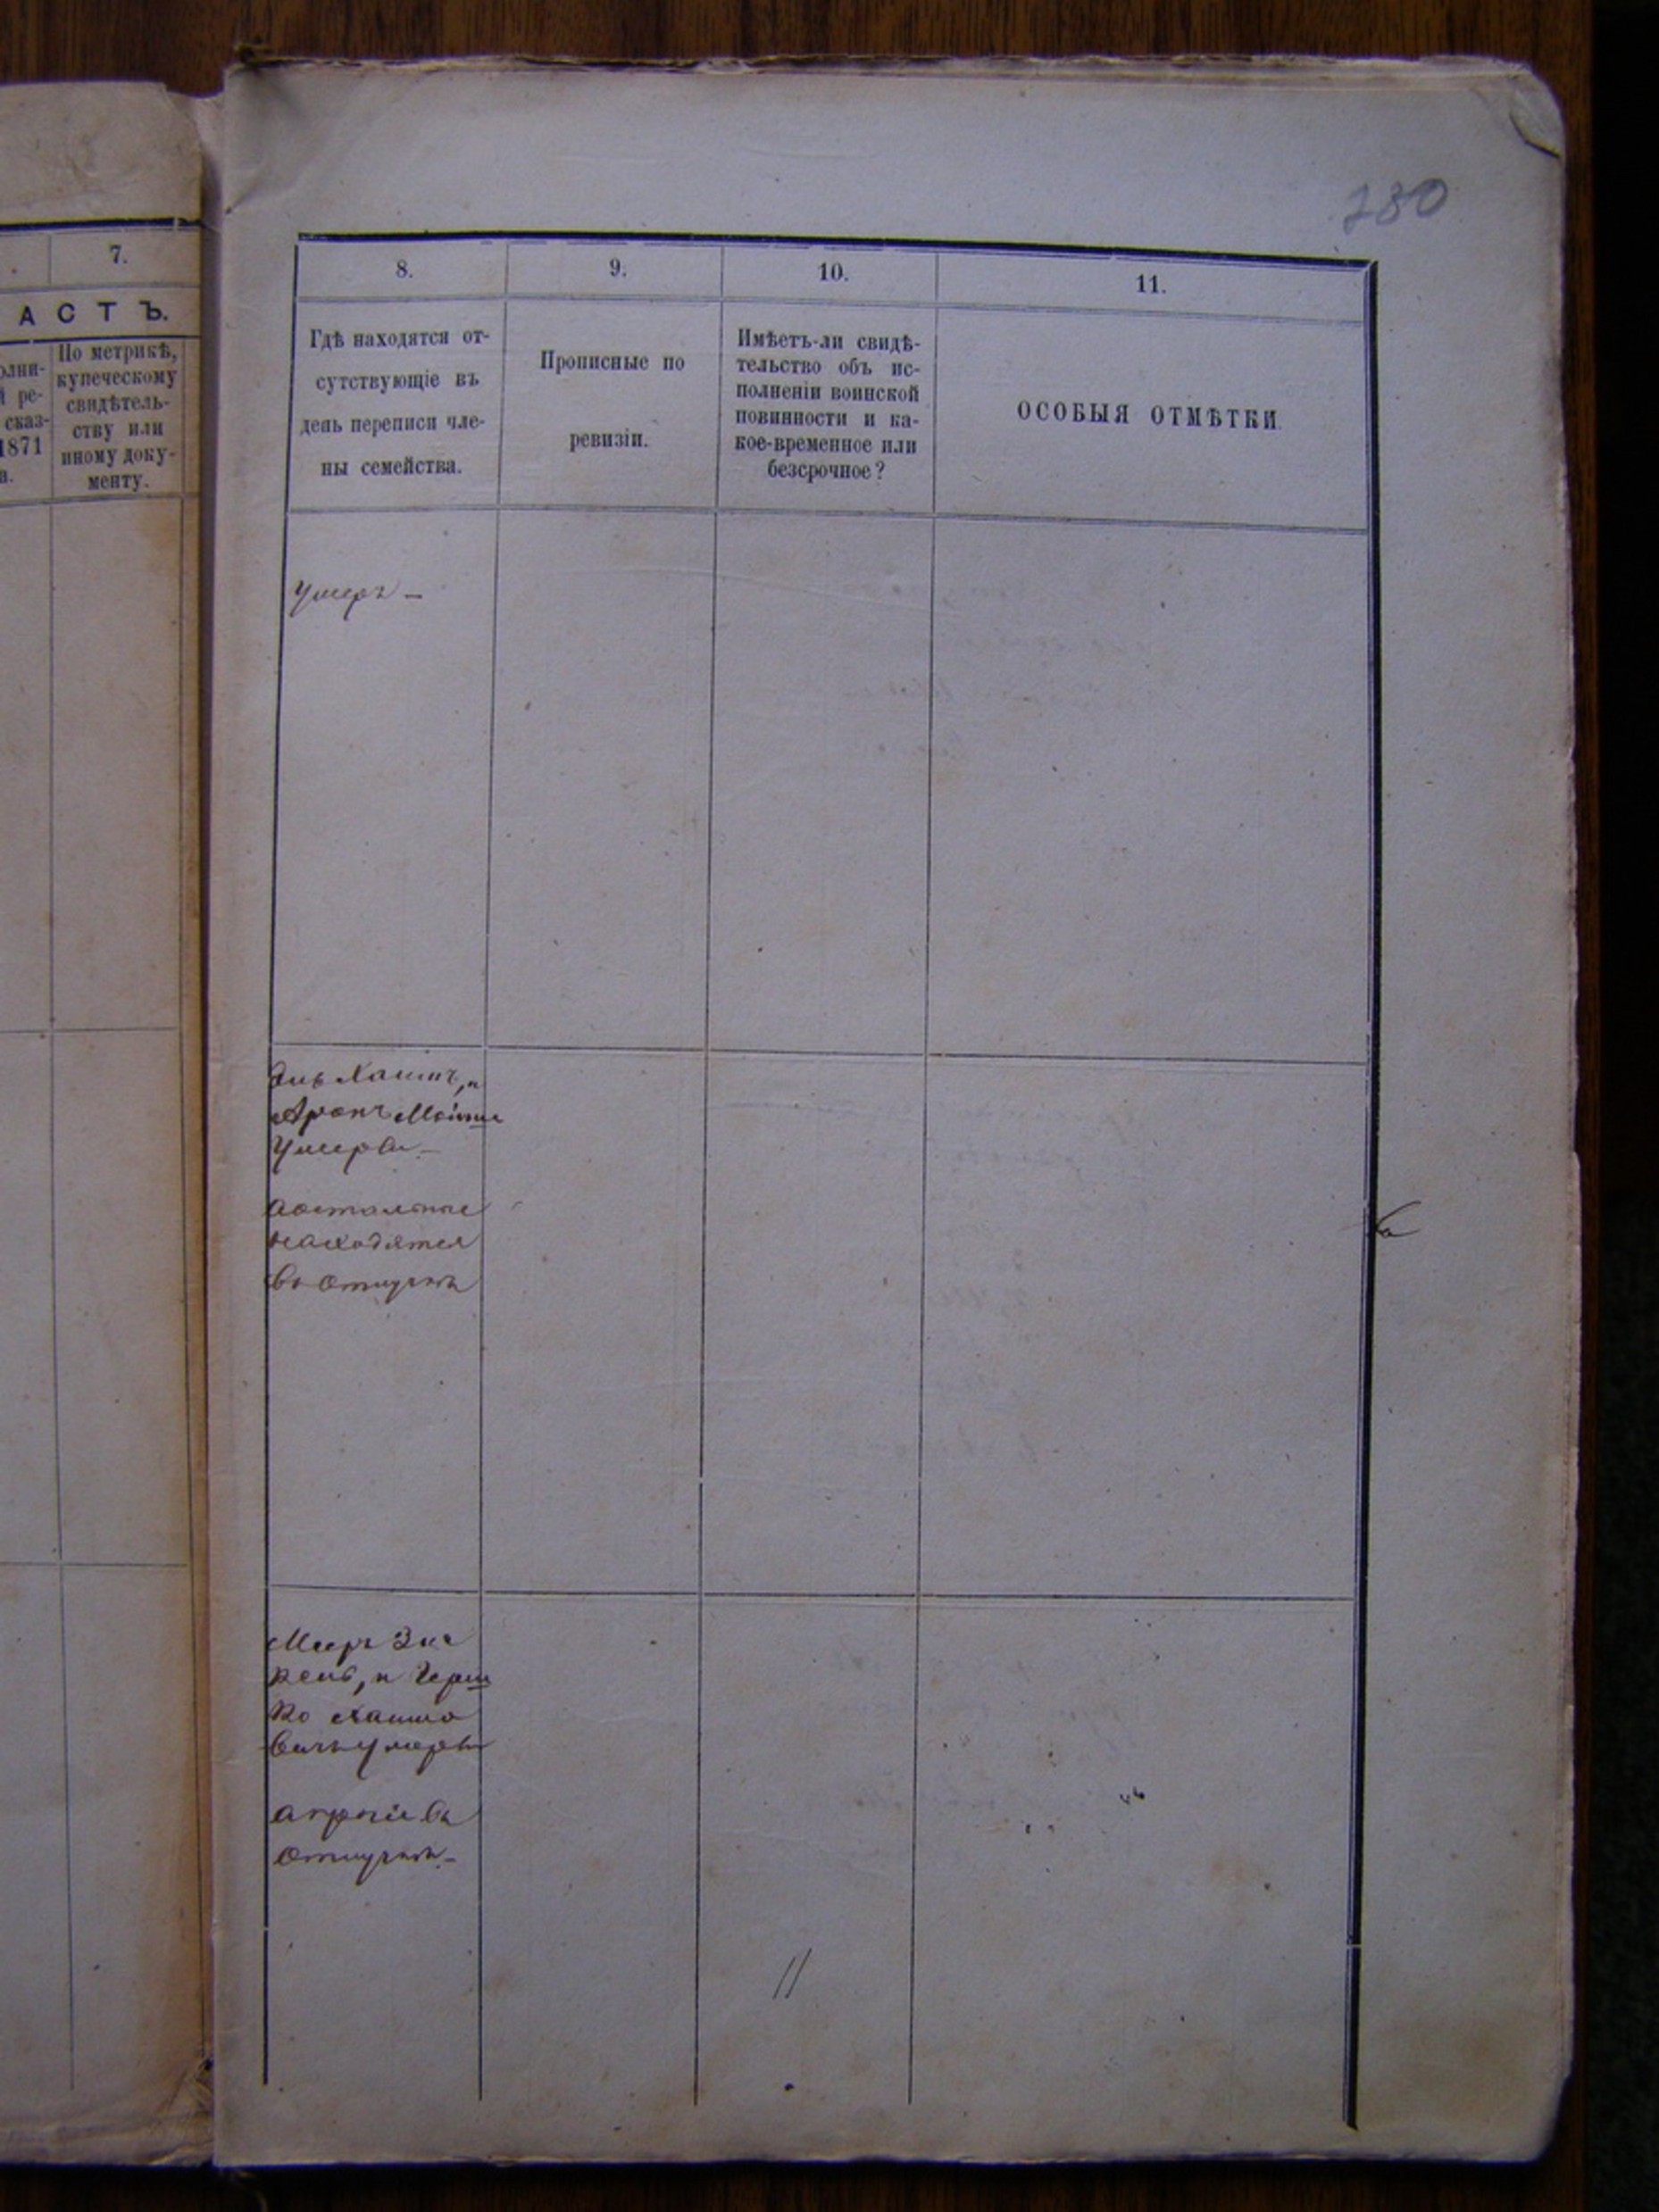 7.
АСТЪ.
олни-
й ре-
сказ-
1871
а.
По метрикѣ,
купеческому
свидѣтель-
ству или
иному доку-
менту.
280
8.
9.
10.
11.
Гдѣ находятся от-
сутствующіе въ
день переписи чле-
ны семейства.
Прописные по
ревизіи.
Имѣетъ-ли свидѣ-
тельство объ ис-
полненіи воинской
повинности и ка-
кое-временное или
безсрочное?
ОСОБЫЯ ОТМѢТКИ.
Умеръ —
Хаимъ, и
Аронъ Мовша
Умерли —
Аостальные
находятся
въ отлучкѣ
Мееръ
и Герш
ко Хаимо
вичъ умерли
апрочіе въ
отлучкѣ —
11